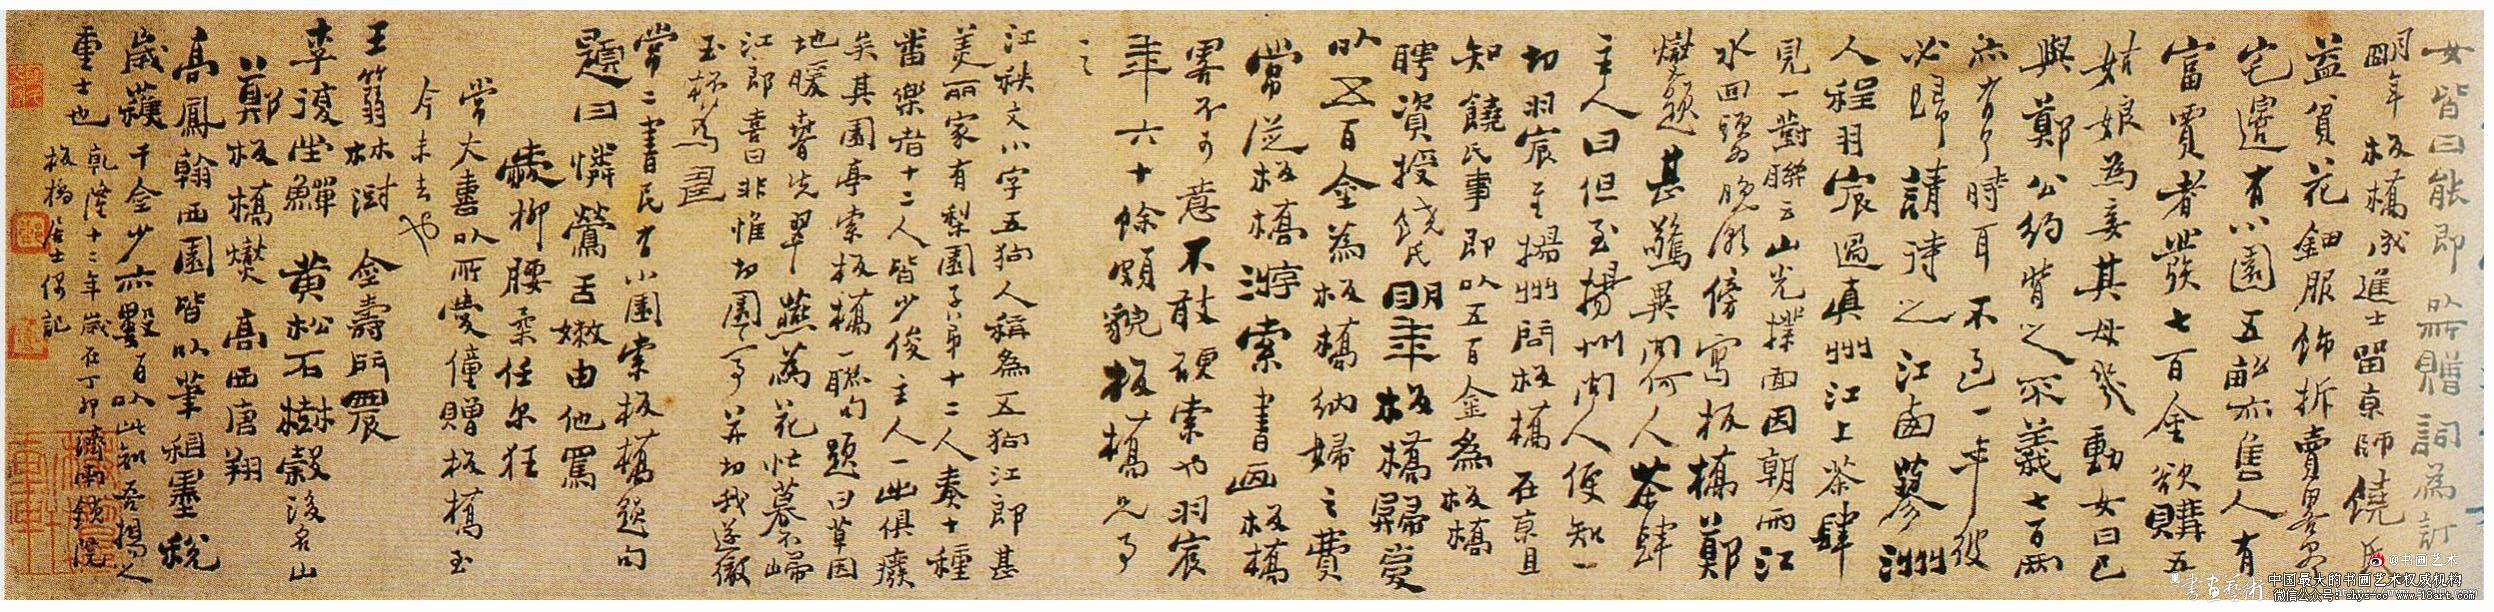 女皆曰能即以所贈詞為訂
明年板橋成進士留京師饒氏
益貧花鈿服飾拆賣畧盡
宅邊有小園五畝亦售人有
富賈者發七百金欲購五
姑娘為妾其母幾動女曰已
與鄭公約背之不義七百兩
亦有了時耳不過一年彼
必歸請待之江西蓼洲
人程羽宸過真州江上茶肆
見一對聯云山光撲面因朝雨江
水回頭為晚潮傍寫板橋鄭
燮題甚驚異問何人茶肆
主人曰但至揚州問人便知一
切羽宸至揚州問板橋在京且
知饒氏事即以五百金為板橋
聘資授饒氏明年板橋歸復
以五百金為板橋納婦之費
常從板橋遊索書画板橋
畧不可意不敢硬索也羽宸
年六十餘頗貌板橋兄事
之
江秩文小字五狗人稱為五狗江郎甚
美麗家有梨園子弟十二人奏十種
番樂者十二人皆少俊主人一出俱癈
矣其園亭索板橋一聯句題曰草因
地暖春先翠燕為花忙暮不歸
江郎喜曰非惟切園亭并切我遂徹
玉杯為壽
常二書民有小園索板橋題句
題曰憐鶯舌嫩由他罵
愛柳腰柔任爾狂
常大喜以所愛僮贈板橋至
今未去也
王箬林澍 金壽門農
李復堂鱓 黃松石樹穀後名山
鄭板橋燮 高西唐翔
高鳳翰西園皆以筆租墨稅
歲獲千金少亦數百以此知吾揚之
重士也 乾隆十二年歲在丁卯濟南鎖院
板橋居士偶記
@书画艺术
書畫藝術
中国最大的书画艺术权威机构